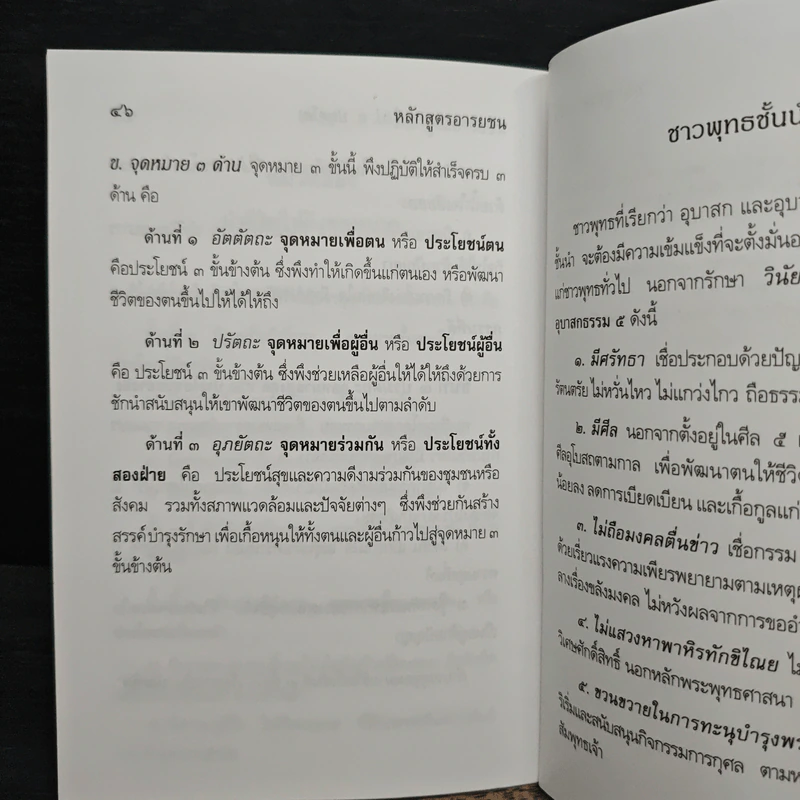 ๔๖
หลักสูตรอารยชน
ข. จุดหมาย ๓ ด้าน จุดหมาย ๓ ขั้นนี้ พึงปฏิบัติให้สำเร็จครบ ๓
ด้าน คือ
ด้านที่ ๑ อัตตัตถะ จุดหมายเพื่อตน หรือ ประโยชน์ตน
คือประโยชน์ ๓ ขั้นข้างต้น ซึ่งพึงทำให้เกิดขึ้นแก่ตนเอง หรือพัฒนา
ชีวิตของตนขึ้นไปให้ได้ให้ถึง
ด้านที่ ๒ ปรัตถะ จุดหมายเพื่อผู้อื่น หรือ ประโยชน์ผู้อื่น
คือ ประโยชน์ ๓ ขั้นข้างต้น ซึ่งพึงช่วยเหลือผู้อื่นให้ได้ให้ถึงด้วยการ
ชักนำสนับสนุนให้เขาพัฒนาชีวิตของตนขึ้นไปตามลำดับ
ด้านที่ ๓ อุภยัตถะ จุดหมายร่วมกัน หรือ ประโยชน์ทั้ง
สองฝ่าย คือ ประโยชน์สุขและความดีงามร่วมกันของชุมชนหรือ
สังคม รวมทั้งสภาพแวดล้อมและปัจจัยต่างๆ ซึ่งพึงช่วยกันสร้าง
สรรค์ บำรุงรักษา เพื่อเกื้อหนุนให้ทั้งตนและผู้อื่นก้าวไปสู่จุดหมาย ๓
ขั้นข้างต้น
ชาวพุทธชั้น
ชาวพุทธที่เรียกว่า อุบาสก และอุบา
ชั้นนำ จะต้องมีความเข้มแข็งที่จะตั้งมั่น
แก่ชาวพุทธทั่วไป นอกจากรักษา วินัย
อุบาสกธรรม ๕ ดังนี้
๑. มีศรัทธา เชื่อประกอบด้วยปัญ
รัตนตรัย ไม่หวั่นไหว ไม่แกว่งไกว ถือธรร
๒. มีศีล นอกจากตั้งอยู่ในศีล ๕
ศีลอุโบสถตามกาล เพื่อพัฒนาตนให้ชีวิ
น้อยลง ลดการเบียดเบียน และเกื้อกูลแก่
๓. ไม่ถือมงคลตื่นข่าว เชื่อกรรม
ด้วยเรี่ยวแรงความเพียรพยายามตามเหตุ
ลางเรื่องขลังมงคล ไม่หวังผลจากการขอ
๔. ไม่แสวงหาพาหิรทักขิไณย ไ
วิเศษศักดิ์สิทธิ์ นอกหลักพระพุทธศาสนา
๕. ขวนขวายในการทะนุบำรุงพ
ริเริ่มและสนับสนุนกิจกรรมการกุศล ตาม
สัมพุทธเจ้า